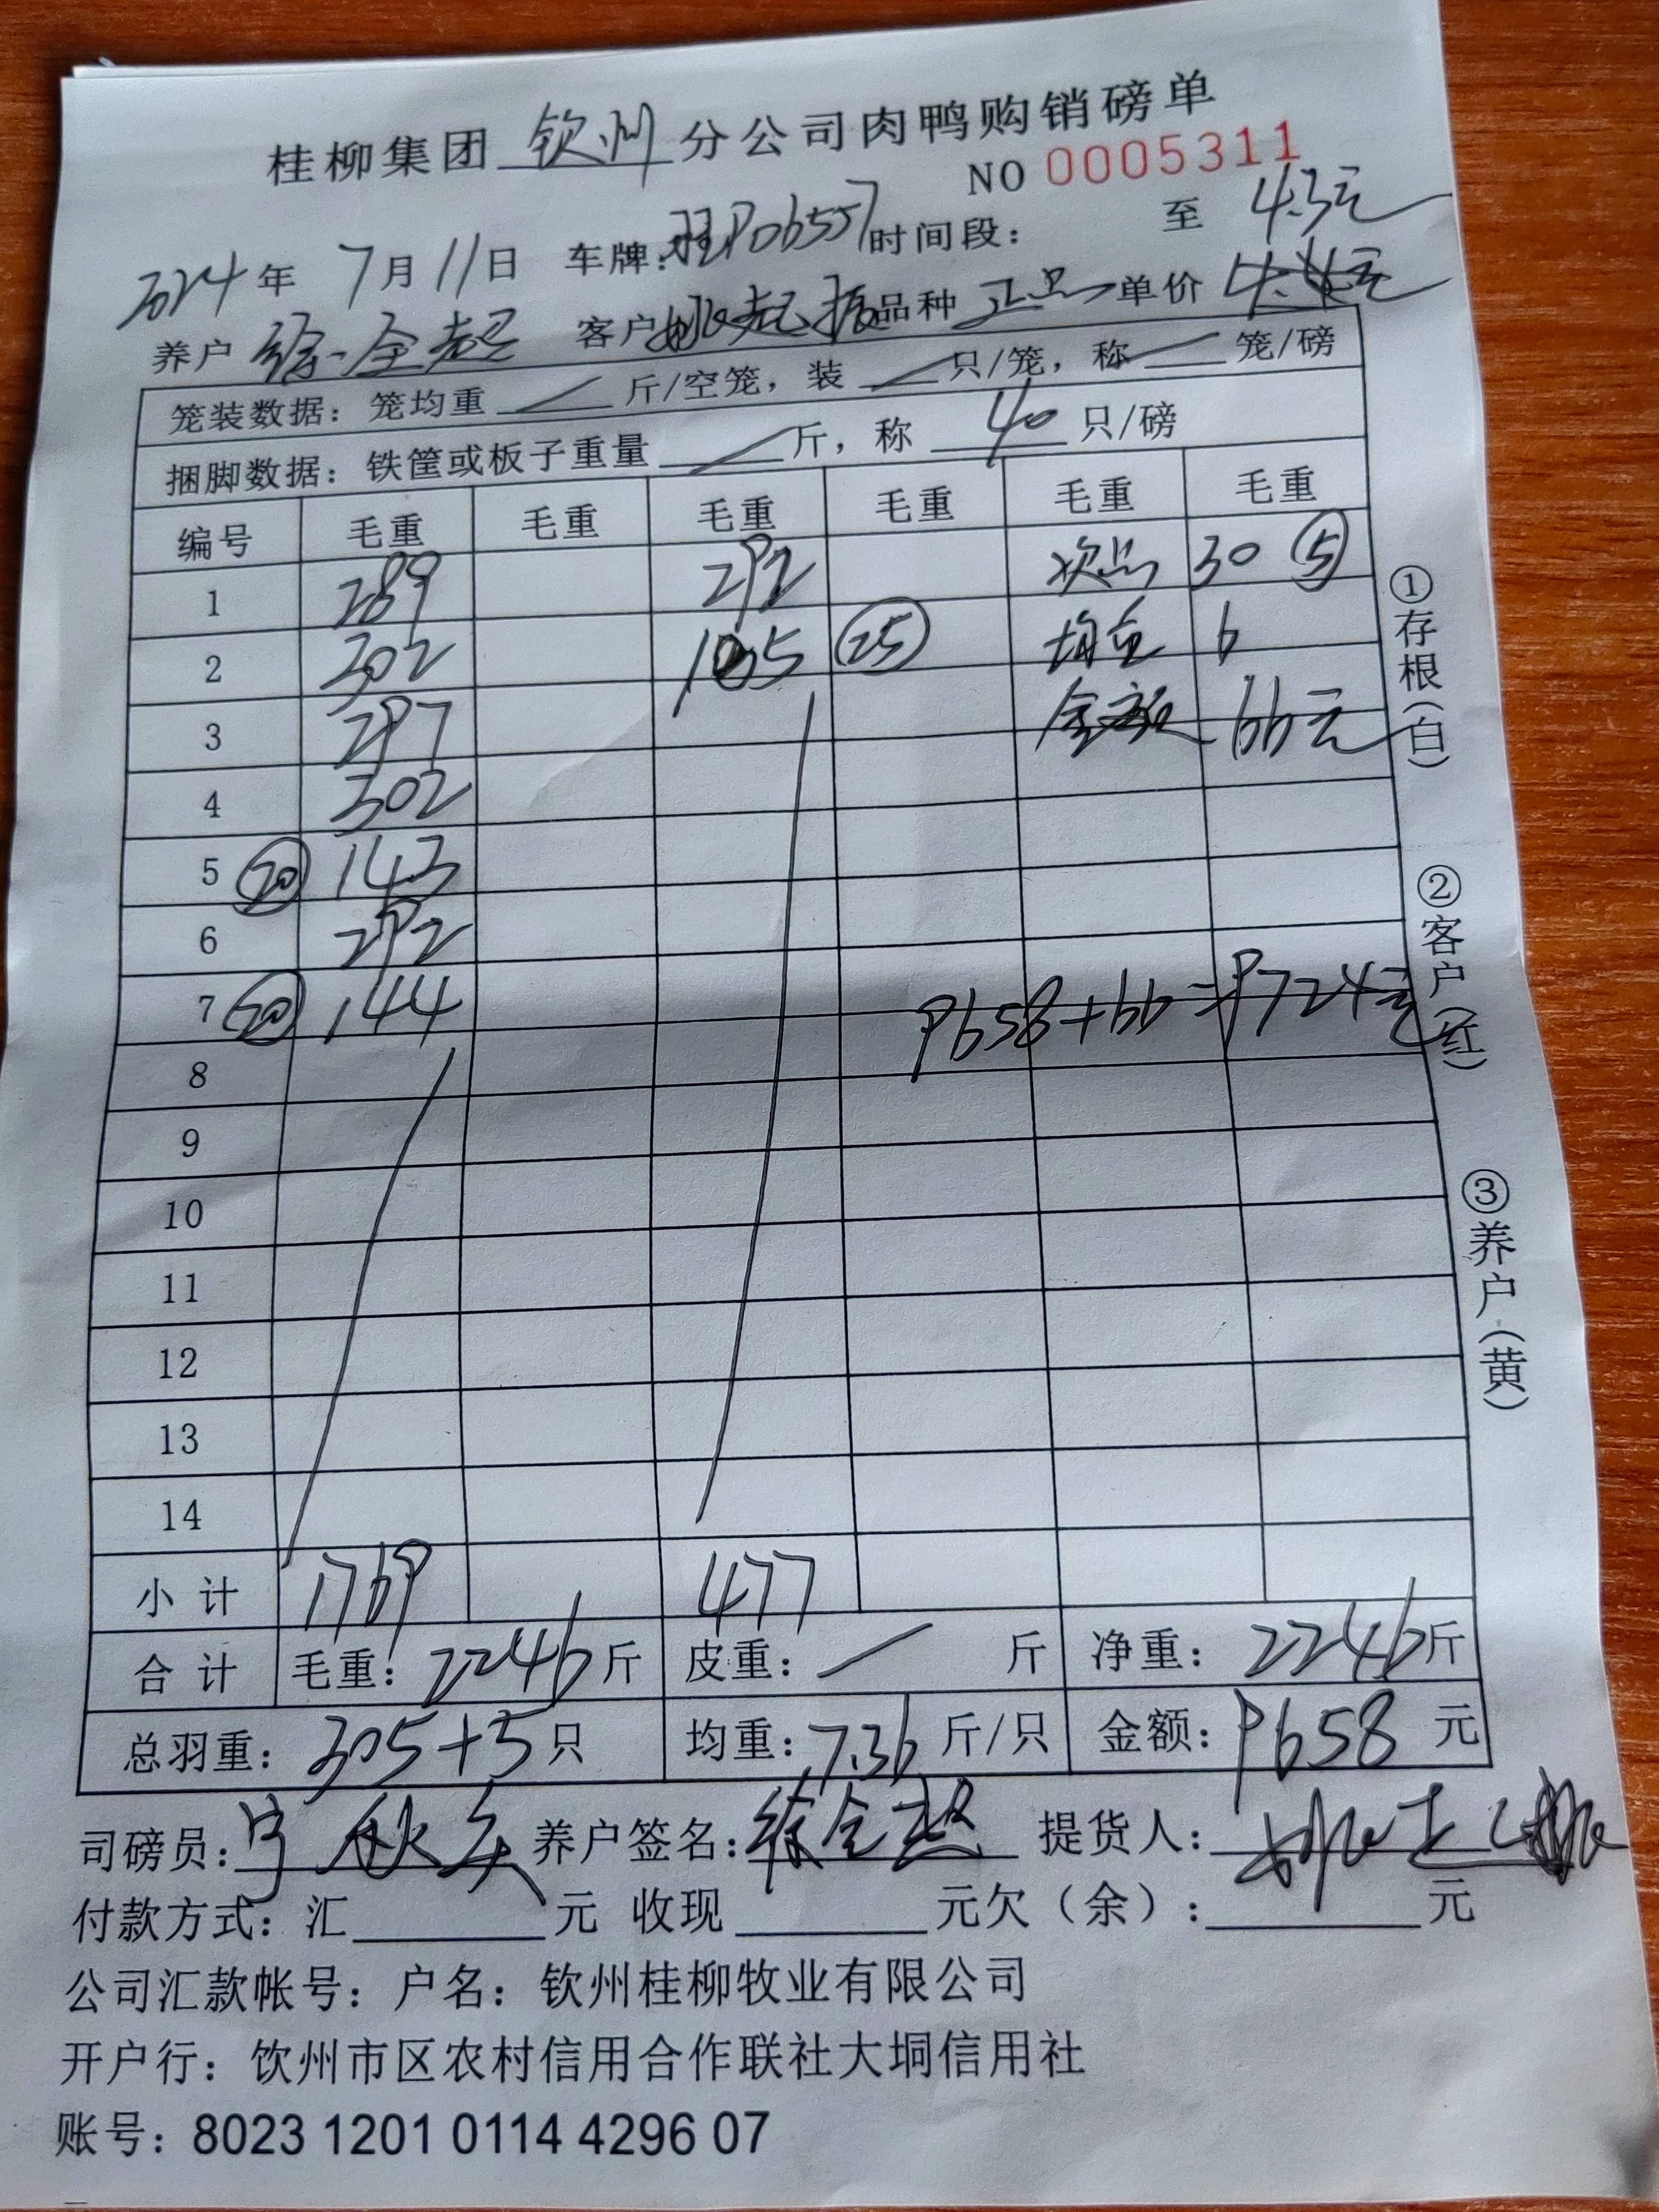 桂柳集团 钦州 分公司肉鸭购销磅单
NO 0005311
2024年 7月11日 车牌:桂P06557 时间段: 至 4.3元
养户 徐全超 客户 姚起振 品种 正品 单价
笼装数据: 笼均重 斤/空笼, 装 只/笼, 称 笼/磅
捆脚数据: 铁筐或板子重量 斤, 称 40 只/磅
编号 毛重 毛重 毛重 毛重 毛重 毛重
1 289 292 次品 30 ⑤
2 302 185 ㉕ 均重 6
3 297 金额 66元
4 302
5 ⑳ 143
6 292
7 ⑳ 144 9658+66=9724元
8
9
10
11
12
13
14
小计 1769 477
合计 毛重: 2246斤 皮重: 斤 净重: 2246斤
总羽重: 305+5只 均重: 7.36斤/只 金额: 9658元
司磅员: 养户签名: 徐全超 提货人:
付款方式: 汇 元 收现 元欠(余): 元
公司汇款帐号: 户名: 钦州桂柳牧业有限公司
开户行: 钦州市区农村信用合作联社大垌信用社
账号: 8023 1201 0114 4296 07
①存根(白)
②客户(红)
③养户(黄)